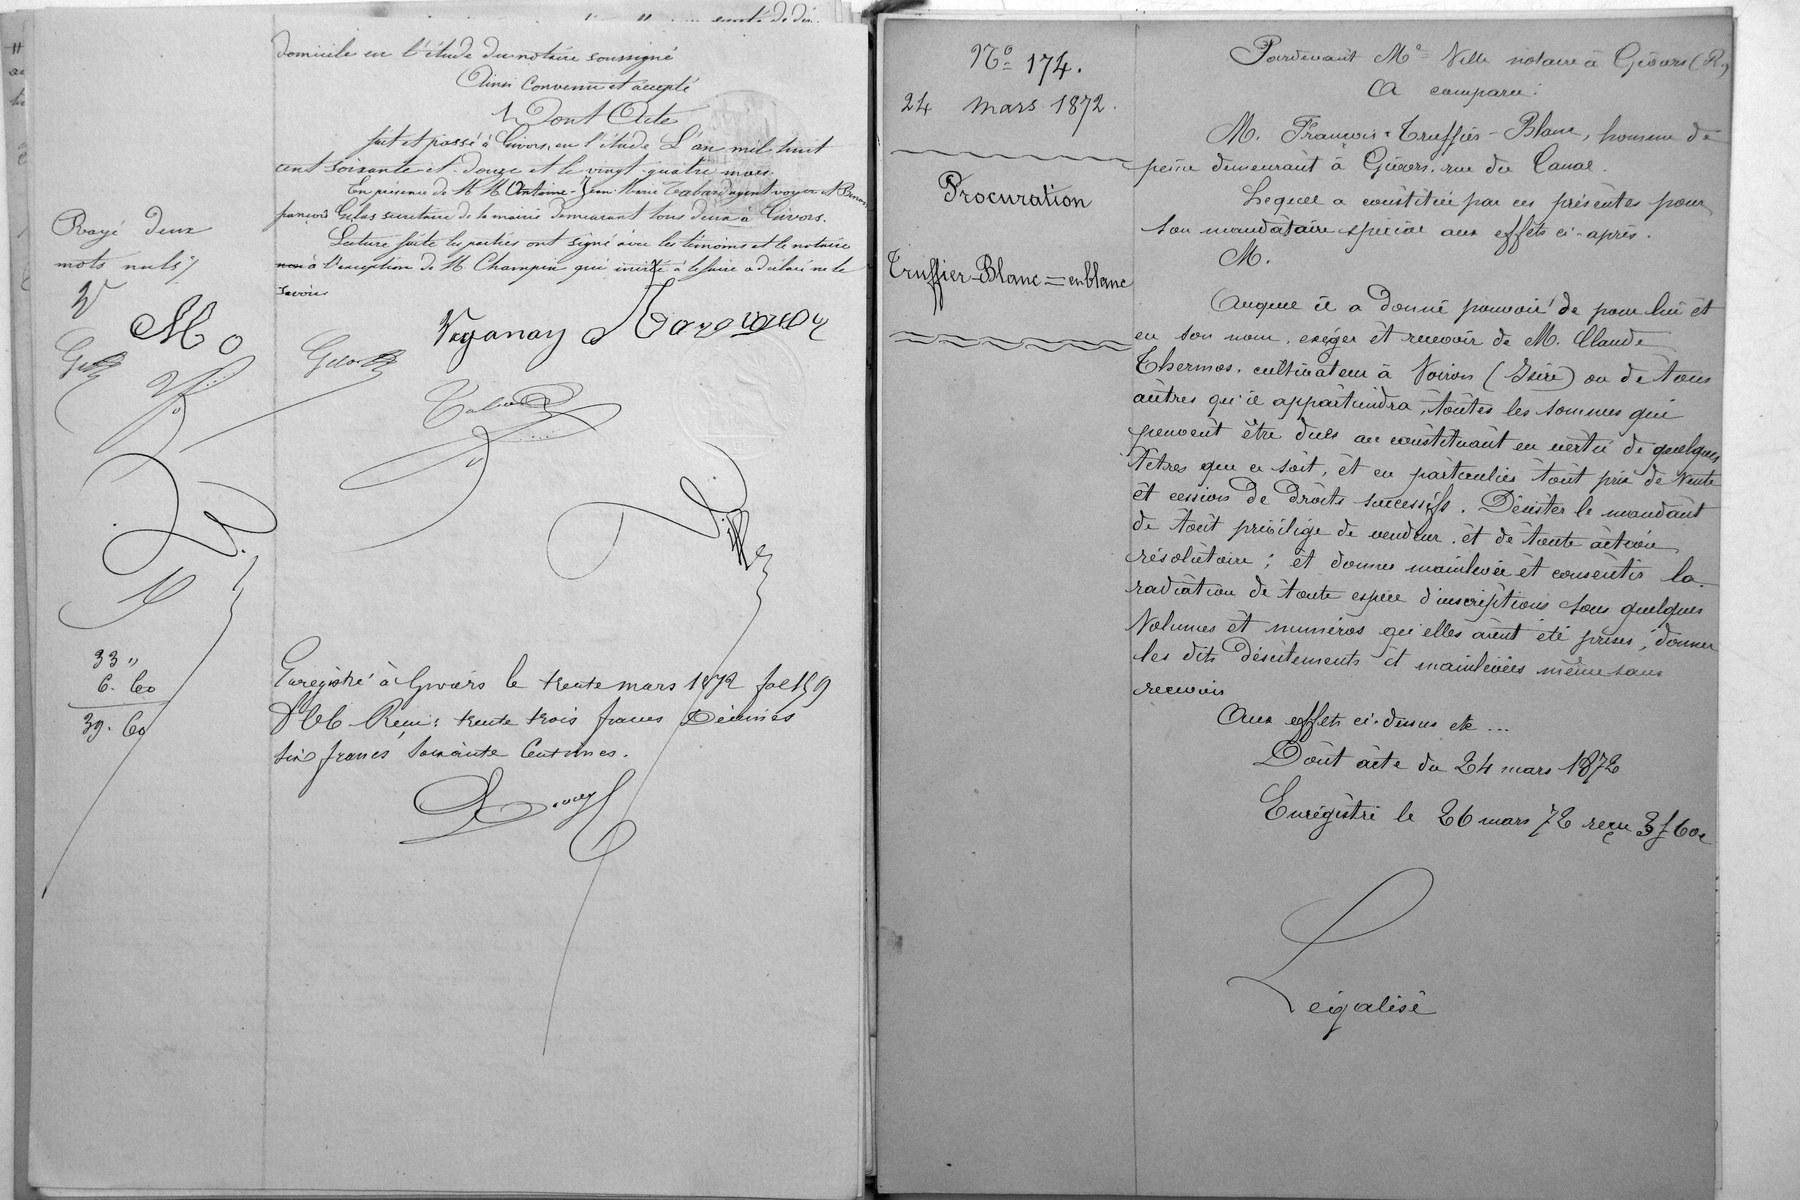 domicile en l'étude du notaire soussigné
Ainsi convenu et accepté
Dont Acte
fait et passé à Givors, en l'étude L'an mil huit
cent soixante et douze et le vingt quatre mars.
En présence de M M Antoine-Jean Marie Tabard agent voyer et
françois Gelas secrétaire de la mairie demeurant tous deux à Givors.
Lecture faite les parties ont signé avec les témoins et le notaire
à l'exception de M Champin qui invité à le faire a déclaré ne le
savoir
Rayé deux
mots nuls
Veganay
33 "
6. 60
39. 60
Enregistré à Givors le trente mars 1872 fol 159
Reçu: trente trois francs Décimes
six francs soixante Centimes.
No 174.
24 mars 1872.
Procuration
Truffier-Blanc = en blanc
Pardevant Me Ville notaire à Givors (R.)
A comparu:
M. François Truffier-Blanc, homme de
peine demeurant à Givors, rue du Canal.
Lequel a constitué par ces présentes pour
son mandataire spécial aux effets ci-après.
M.
Auquel il a donné pouvoir de pour lui et
en son nom, exiger et recevoir de M. Claude
Thermos, cultivateur à Voiron (Isère) ou de tous
autres qu'il appartiendra, toutes les sommes qui
peuvent être dues au constituant en vertu de quelques
titres que ce soit, et en particulier tout prix de vente
et cession de droits successifs. Désister le mandant
de tout privilège de vendeur et de toute action
résolutoire; et donner mainlevée et consentir la
radiation de toute espèce d'inscriptions sous quelques
Volumes et numéros qu'elles aient été prises, donner
les dits désistements et mainlevées même sans
recevoir
Aux effets ci-dessus etc ...
Dont acte du 24 mars 1872
Enregistré le 26 mars 72 reçu 3f 60c
Légalisé